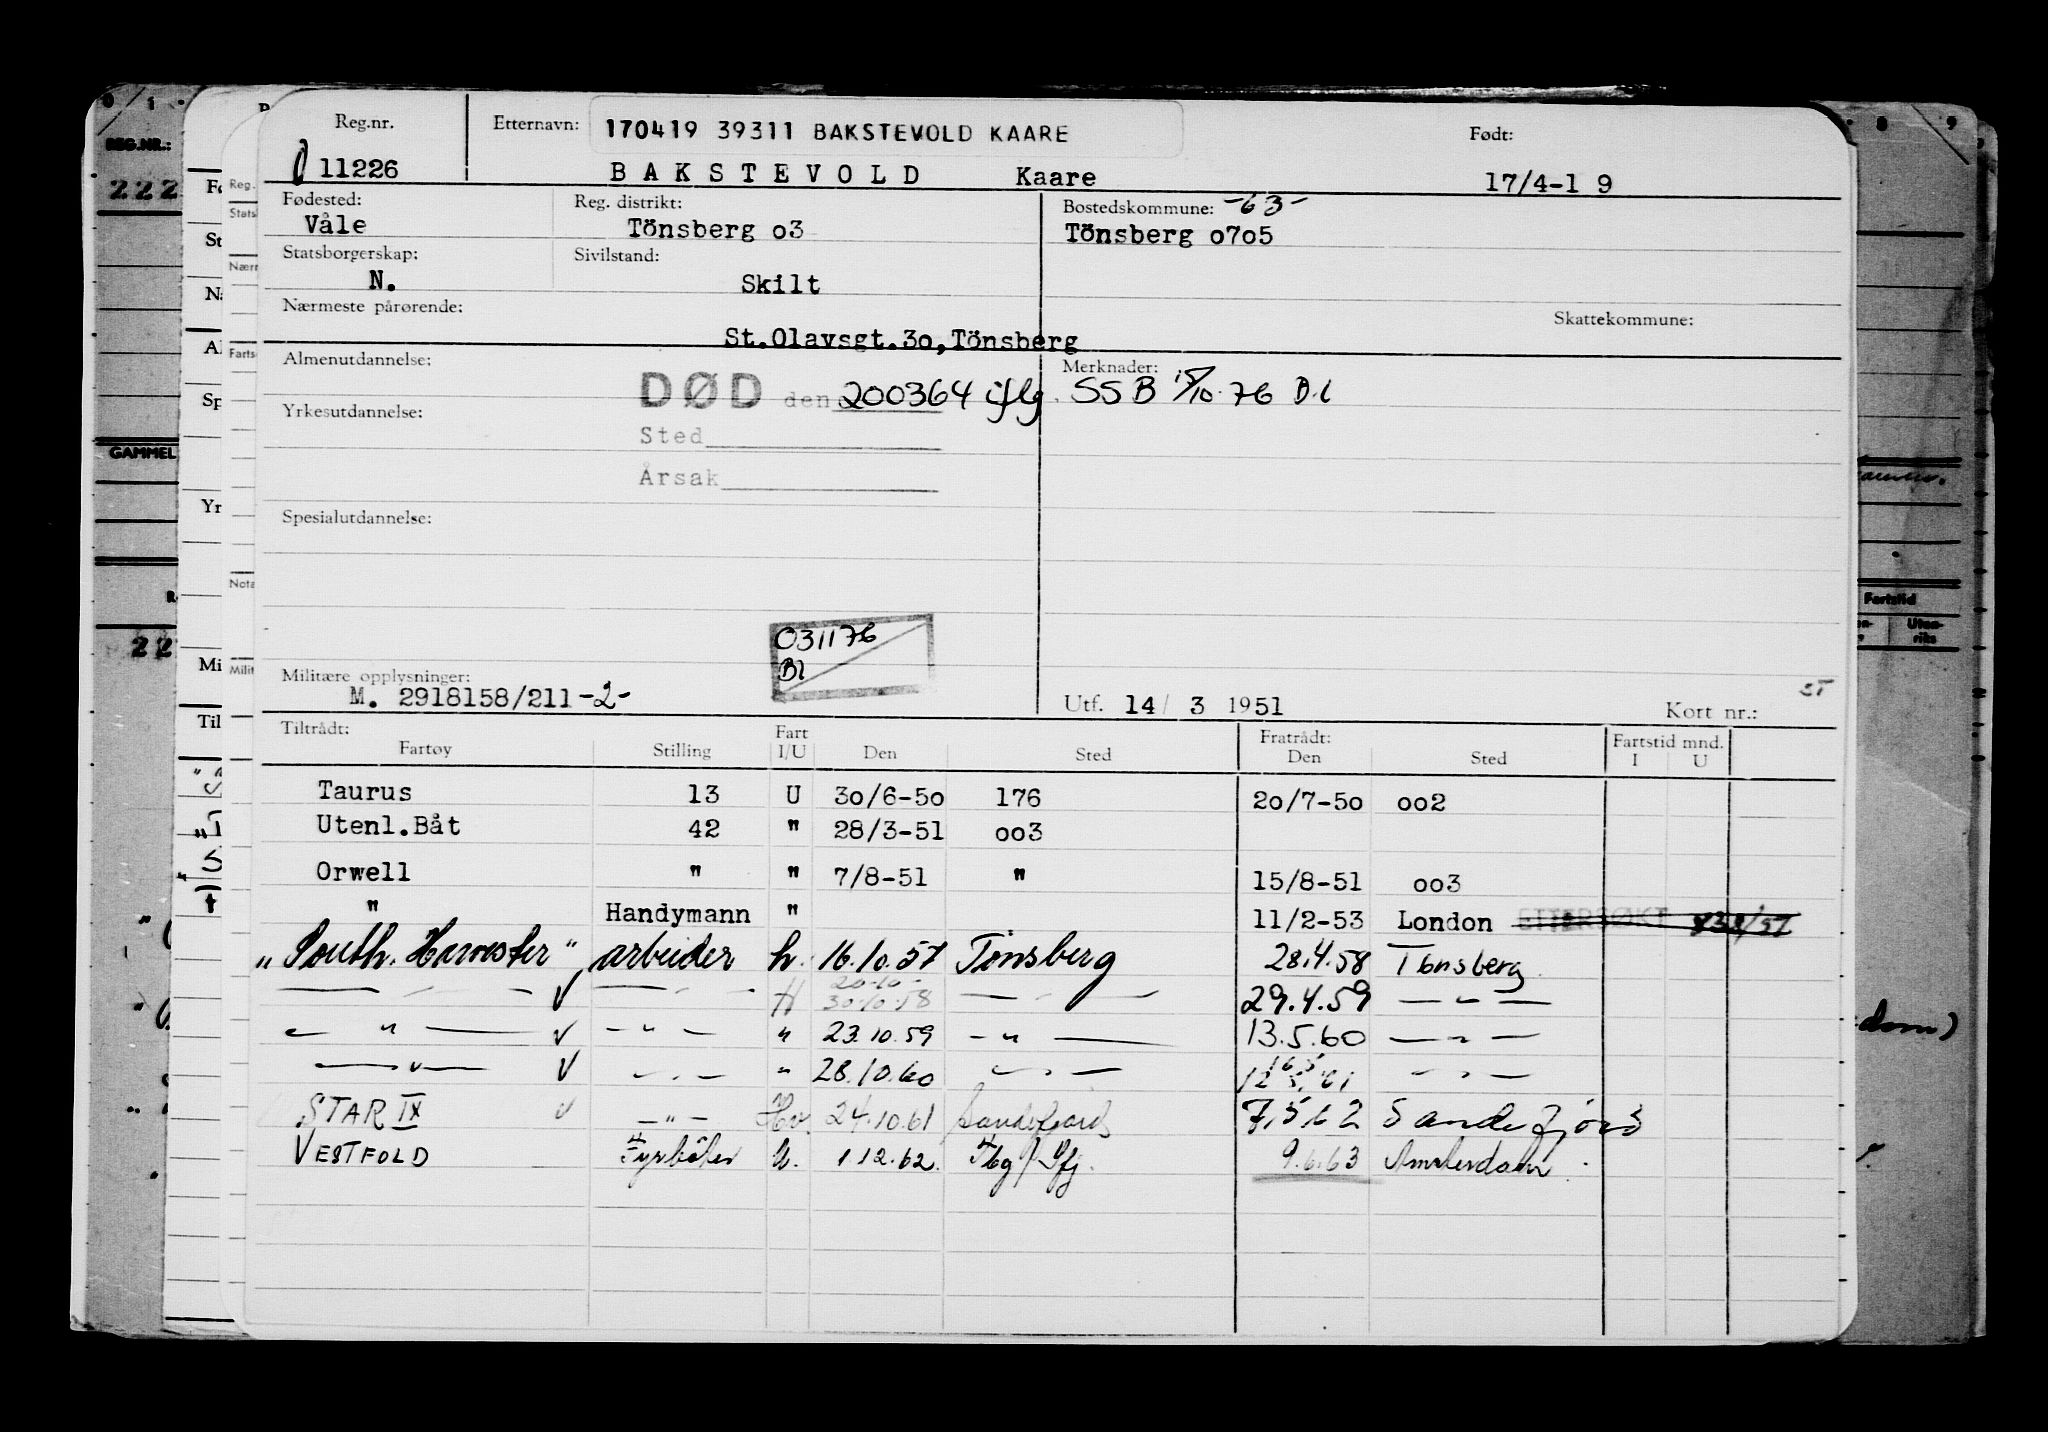 Reg.nr. Etternavn: 170419 39311 BAKSTEVOLD KAARE Født:
11226 BAKSTEVOLD Kaare 17/4-1 9
Fødested: Reg. distrikt: Bostedskommune: -63-
Våle Tönsberg o3 Tönsberg o7o5
Statsborgerskap: Sivilstand:
N. Skilt
Nærmeste pårørende: Skattekommune:
St.Olavsgt.3o,Tönsberg
Almenutdannelse: Merknader:
DØD den 200364 iflg. SSB 15/10-76 Bl
Yrkesutdannelse:
Sted
Årsak
Spesialutdannelse:
031176
Bl
Militære opplysninger:
M. 2918158/211 -2- Utf. 14/ 3 1951 Kort nr.:
Tiltrådt: Fart Fratrådt: Fartstid mnd.
Fartøy Stilling I/U Den Sted Den Sted I U
Taurus 13 U 3o/6-5o 176 2o/7-5o oo2
Utenl.Båt 42 " 28/3-51 oo3
Orwell " " 7/8-51 " 15/8-51 oo3
" Handymann " 11/2-53 London ETTERSØKT
"South. Harvester" arbeider h. 16.10.57 Tønsberg 28.4.58 Tønsberg
— " — — " — H 30.10.58 — " — 29.4.59 — " —
— " — — " — " 23.10.59 — " — 13.5.60 — " —
— " — — " — " 28.10.60 — " — — " —
STAR IX — " — Hv. 24.10.61 Sandefjord 7.5.62 Sandefjord
VESTFOLD Fyrbøter U. 1.12.62. Tbg/Sfj. 9.6.63 Amsterdam.
REG.NR.:
222
GAMMEL
Fartstid
Uten-
riks